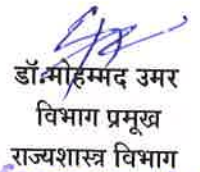 डॉ.मोहम्मद उमर
विभाग प्रमूख
राज्यशास्त्र विभाग